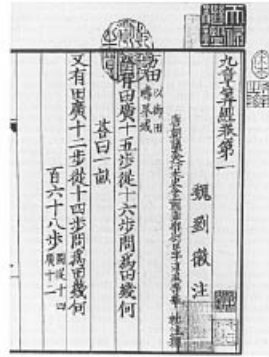 九章筭經卷第一
魏劉徽注
唐朝議大夫行太史令上輕車都尉臣李淳風等奉 勑注釋
方田
以御田
疇界域
有田廣十五步從十六步問爲田幾何
荅曰一畝
又有田廣十二步從十四步問爲田幾何
百六十八步
圖從十四
廣十二